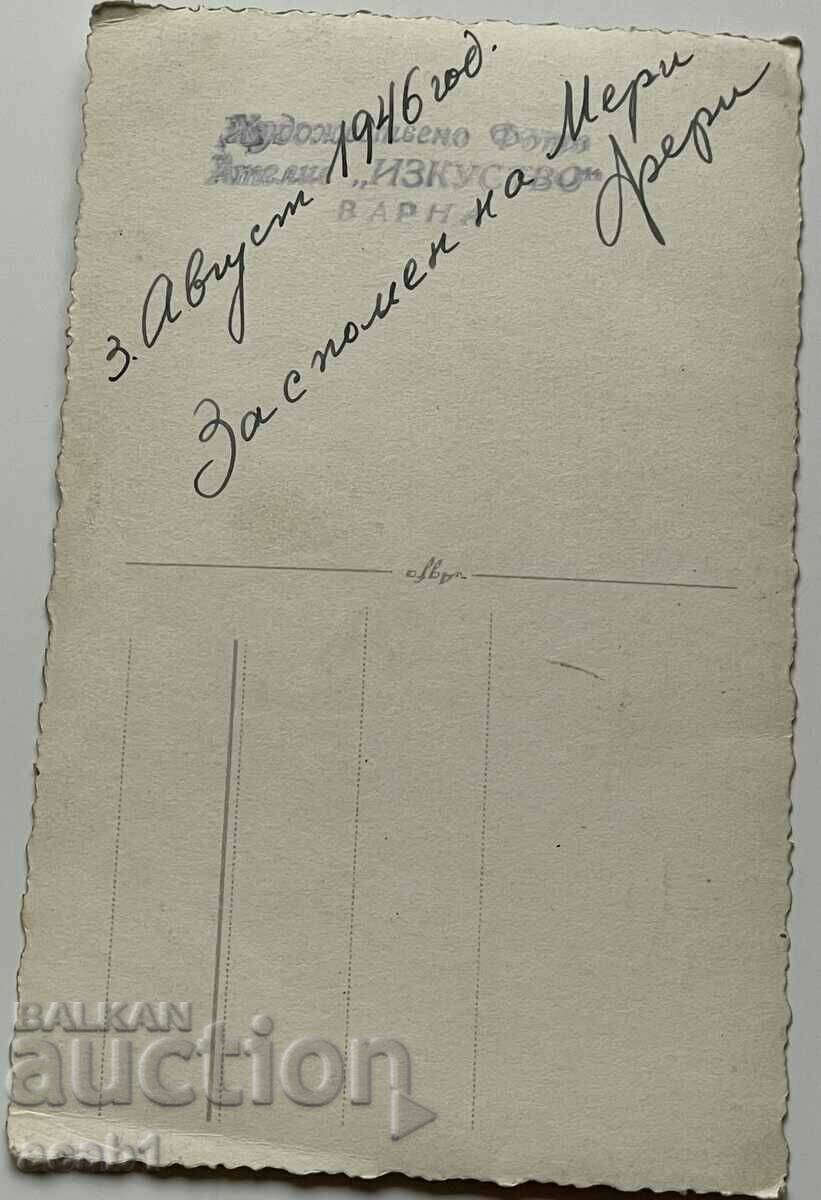 3. Август 1946 год.
За спомен на Мери
Художествено Фото
Ателие „ИЗКУСТВО"
ВАРНА
BALKAN
auction
acab1